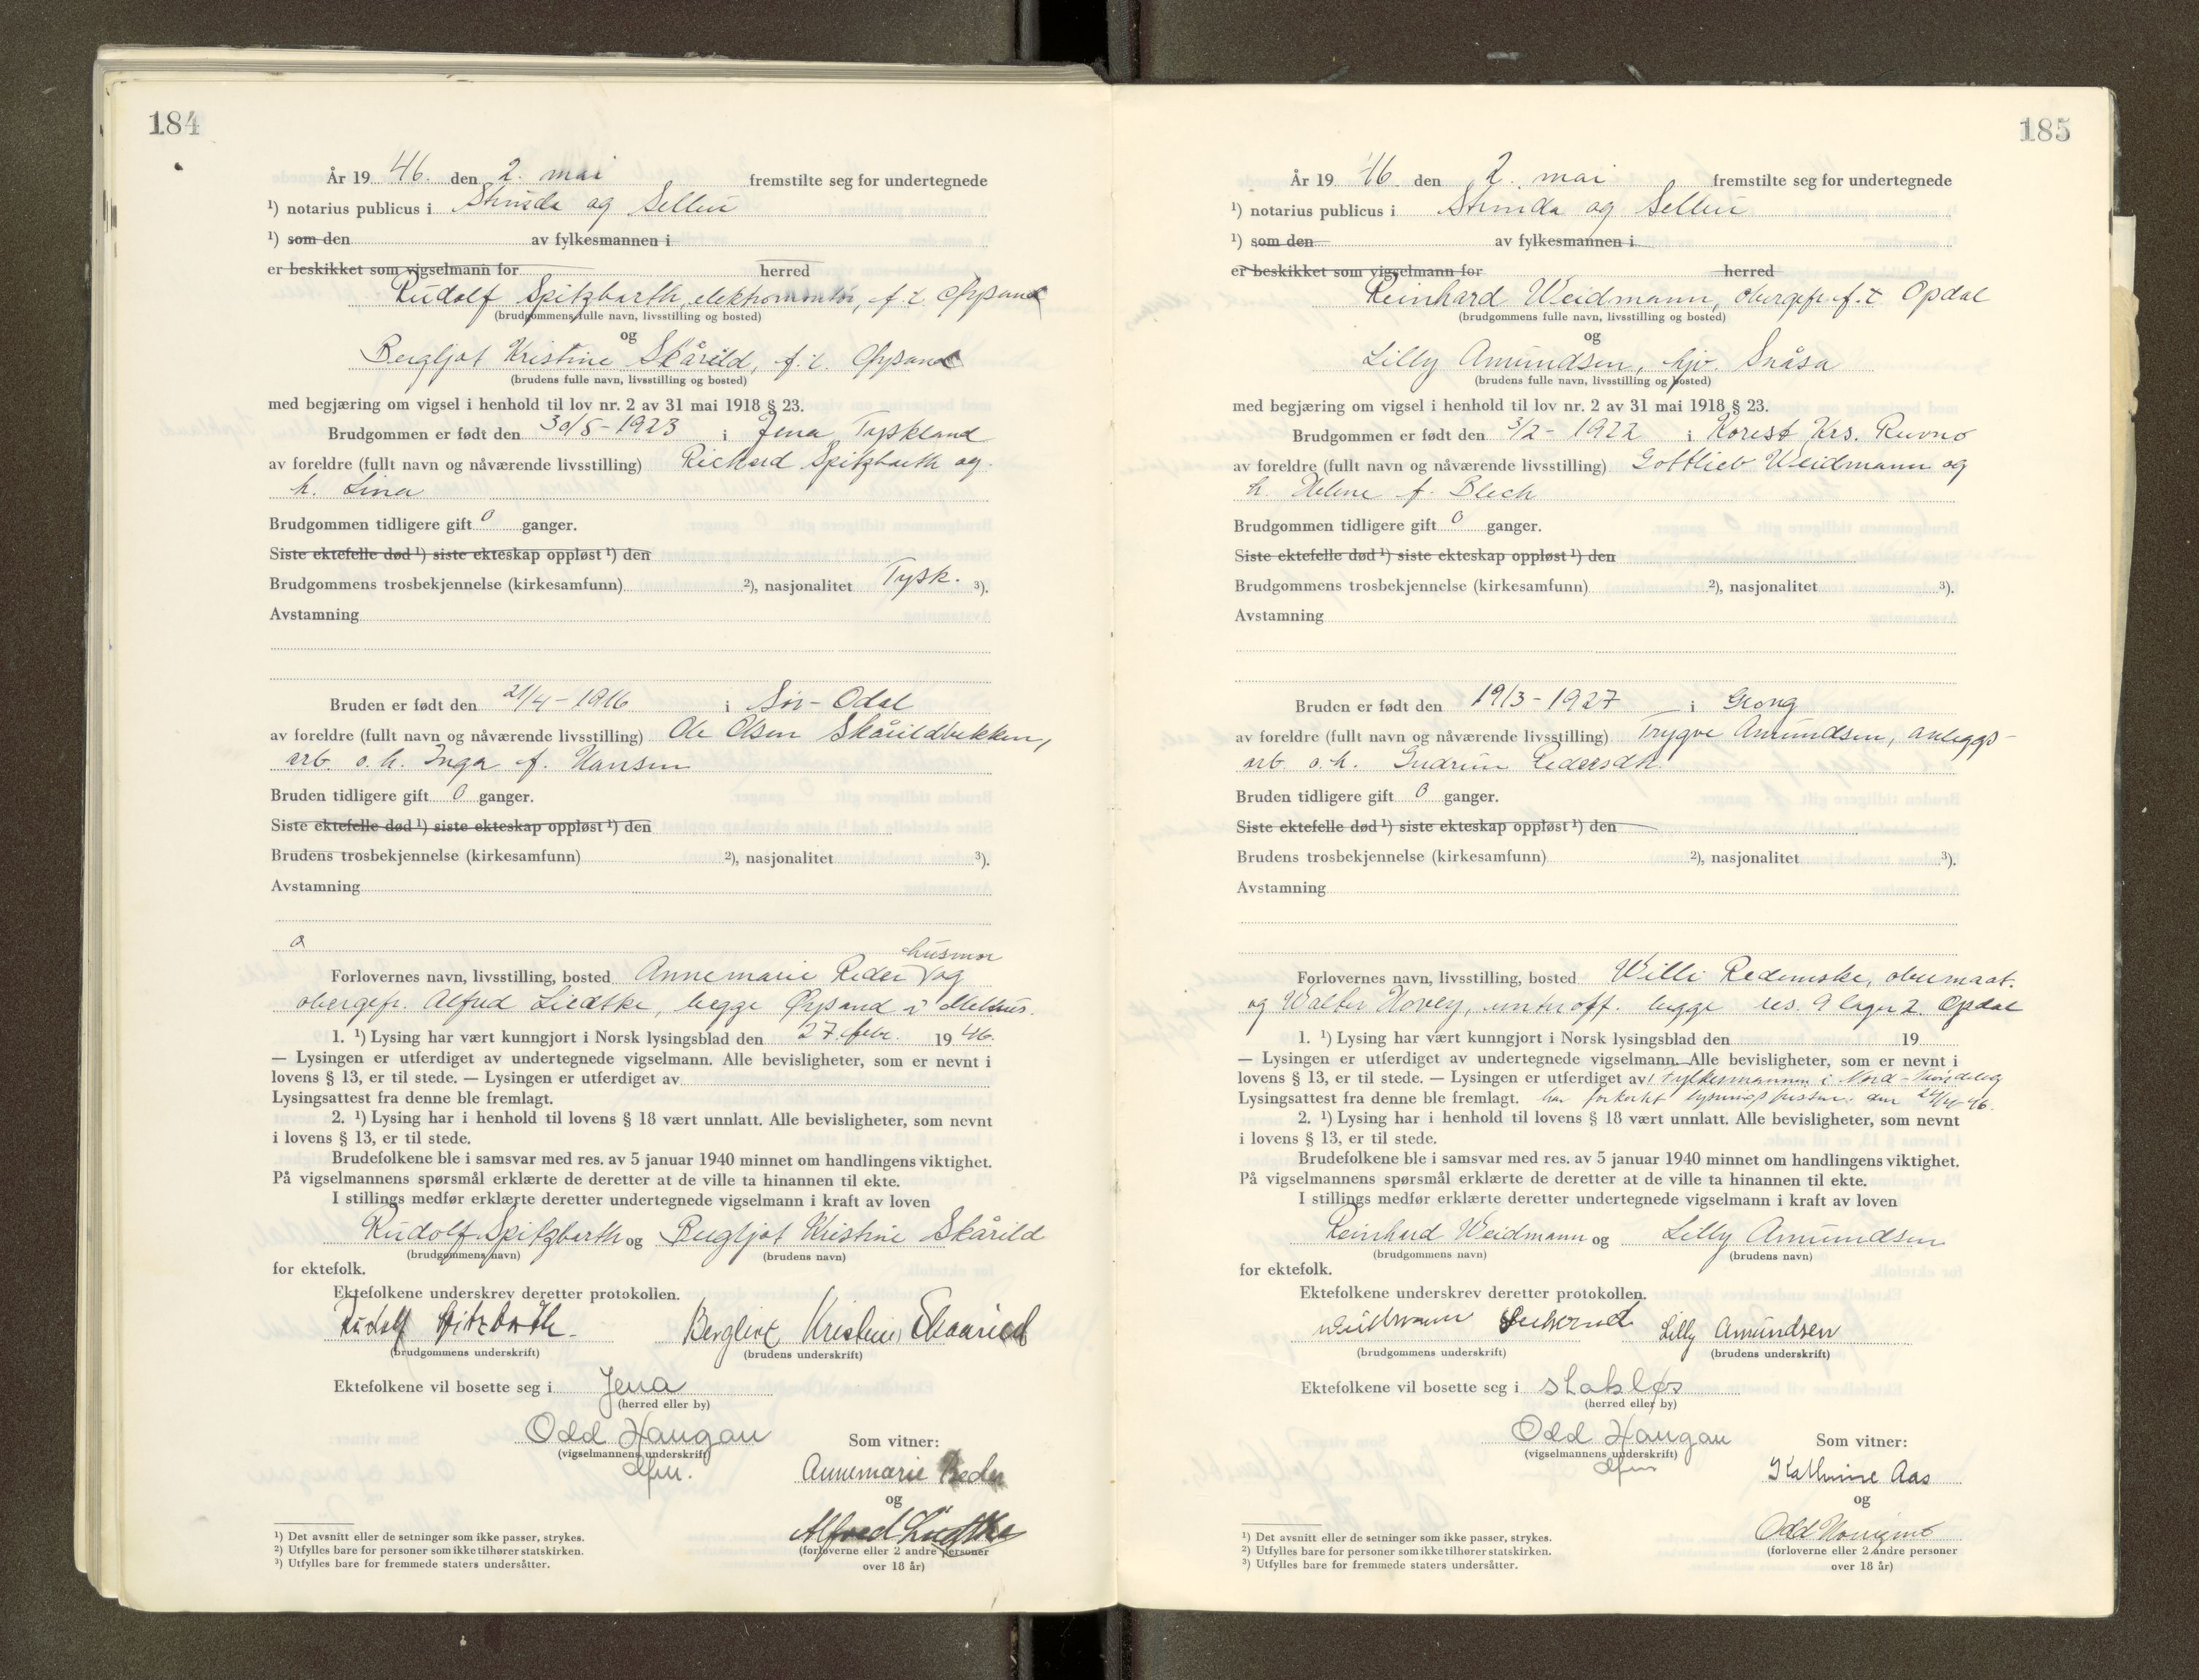 184
År 19 46. den 2. mai fremstilte seg for undertegnede
¹) notarius publicus i Strinda og Selbu
¹) som den av fylkesmannen i
er beskikket som vigselmann for herred
Rudolf Spitzbarth, elektromontør, f.t. Øysand
(brudgommens fulle navn, livsstilling og bosted)
og
Bergljot Kristine Skårild, f.t. Øysand
(brudens fulle navn, livsstilling og bosted)
med begjæring om vigsel i henhold til lov nr. 2 av 31 mai 1918 § 23.
Brudgommen er født den 30/5-1923 i Jena Tyskland
av foreldre (fullt navn og nåværende livsstilling) Richard Spitzbarth og
h. Lina
Brudgommen tidligere gift 0 ganger.
Siste ektefelle død ¹) siste ekteskap oppløst ¹) den
Brudgommens trosbekjennelse (kirkesamfunn) ²), nasjonalitet Tysk. ³).
Avstamning
Bruden er født den 21/4-1916 i Sør-Odal
av foreldre (fullt navn og nåværende livsstilling) Ole Olsen Skårildbekken,
arb. o.h. Inga f. Hansen
Bruden tidligere gift 0 ganger.
Siste ektefelle død ¹) siste ekteskap oppløst ¹) den
Brudens trosbekjennelse (kirkesamfunn) ²), nasjonalitet ³).
Avstamning
husmor
Forlovernes navn, livsstilling, bosted Annemarie Reder og
obergefr. Alfred Liedtke, begge Øysand i Melhus.
1. ¹) Lysing har vært kunngjort i Norsk lysingsblad den 27. febr. 19 46.
— Lysingen er utferdiget av undertegnede vigselmann. Alle bevisligheter, som er nevnt i
lovens § 13, er til stede. — Lysingen er utferdiget av
Lysingsattest fra denne ble fremlagt.
2. ¹) Lysing har i henhold til lovens § 18 vært unnlatt. Alle bevisligheter, som nevnt
i lovens § 13, er til stede.
Brudefolkene ble i samsvar med res. av 5 januar 1940 minnet om handlingens viktighet.
På vigselmannens spørsmål erklærte de deretter at de ville ta hinannen til ekte.
I stillings medfør erklærte deretter undertegnede vigselmann i kraft av loven
Rudolf Spitzbarth og Bergljot Kristine Skårild
(brudgommens navn) (brudens navn)
for ektefolk.
Ektefolkene underskrev deretter protokollen.
Rudolf Spitzbarth. Bergliot Kristine Skaarild
(brudgommens underskrift) (brudens underskrift)
Ektefolkene vil bosette seg i Jena
(herred eller by)
Odd Haugan
(vigselmannens underskrift)
dfm.
Som vitner:
Annemarie Reder
og
Alfred Liedtke
(forloverne eller 2 andre personer
over 18 år)
¹) Det avsnitt eller de setninger som ikke passer, strykes.
²) Utfylles bare for personer som ikke tilhører statskirken.
³) Utfylles bare for fremmede staters undersåtter.
185
År 19 46 den 2. mai fremstilte seg for undertegnede
¹) notarius publicus i Strinda og Selbu
¹) som den av fylkesmannen i
er beskikket som vigselmann for herred
Reinhard Weidmann, obergefr. f.t. Opdal
(brudgommens fulle navn, livsstilling og bosted)
og
Lilly Amundsen, hjv. Snåsa
(brudens fulle navn, livsstilling og bosted)
med begjæring om vigsel i henhold til lov nr. 2 av 31 mai 1918 § 23.
Brudgommen er født den 3/2-1922 i Korest Krs. Ruvno
av foreldre (fullt navn og nåværende livsstilling) Gottlieb Weidmann og
h. Helene f. Blech
Brudgommen tidligere gift 0 ganger.
Siste ektefelle død ¹) siste ekteskap oppløst ¹) den
Brudgommens trosbekjennelse (kirkesamfunn) ²), nasjonalitet ³).
Avstamning
Bruden er født den 19/3-1927 i Grong
av foreldre (fullt navn og nåværende livsstilling) Trygve Amundsen, anleggs-
arb. o.h. Gudrun Pedersdtr.
Bruden tidligere gift 0 ganger.
Siste ektefelle død ¹) siste ekteskap oppløst ¹) den
Brudens trosbekjennelse (kirkesamfunn) ²), nasjonalitet ³).
Avstamning
Forlovernes navn, livsstilling, bosted Willi Redemske, obermaat.
og Walter Hovey, unteroff. begge res. 9 lager 2. Opdal
1. ¹) Lysing har vært kunngjort i Norsk lysingsblad den 19
— Lysingen er utferdiget av undertegnede vigselmann. Alle bevisligheter, som er nevnt i
lovens § 13, er til stede. — Lysingen er utferdiget av Fylkesmannen i Nord-Trøndelag
Lysingsattest fra denne ble fremlagt. har forkortet lysningsfristen den 24/4-46.
2. ¹) Lysing har i henhold til lovens § 18 vært unnlatt. Alle bevisligheter, som nevnt
i lovens § 13, er til stede.
Brudefolkene ble i samsvar med res. av 5 januar 1940 minnet om handlingens viktighet.
På vigselmannens spørsmål erklærte de deretter at de ville ta hinannen til ekte.
I stillings medfør erklærte deretter undertegnede vigselmann i kraft av loven
Reinhard Weidmann og Lilly Amundsen
(brudgommens navn) (brudens navn)
for ektefolk.
Ektefolkene underskrev deretter protokollen.
Weidmann Lilly Amundsen
(brudgommens underskrift) (brudens underskrift)
Ektefolkene vil bosette seg i statsløs
(herred eller by)
Odd Haugan
(vigselmannens underskrift)
dfm
Som vitner:
Kathrine Aas
og
Odd
(forloverne eller 2 andre personer
over 18 år)
¹) Det avsnitt eller de setninger som ikke passer, strykes.
²) Utfylles bare for personer som ikke tilhører statskirken.
³) Utfylles bare for fremmede staters undersåtter.